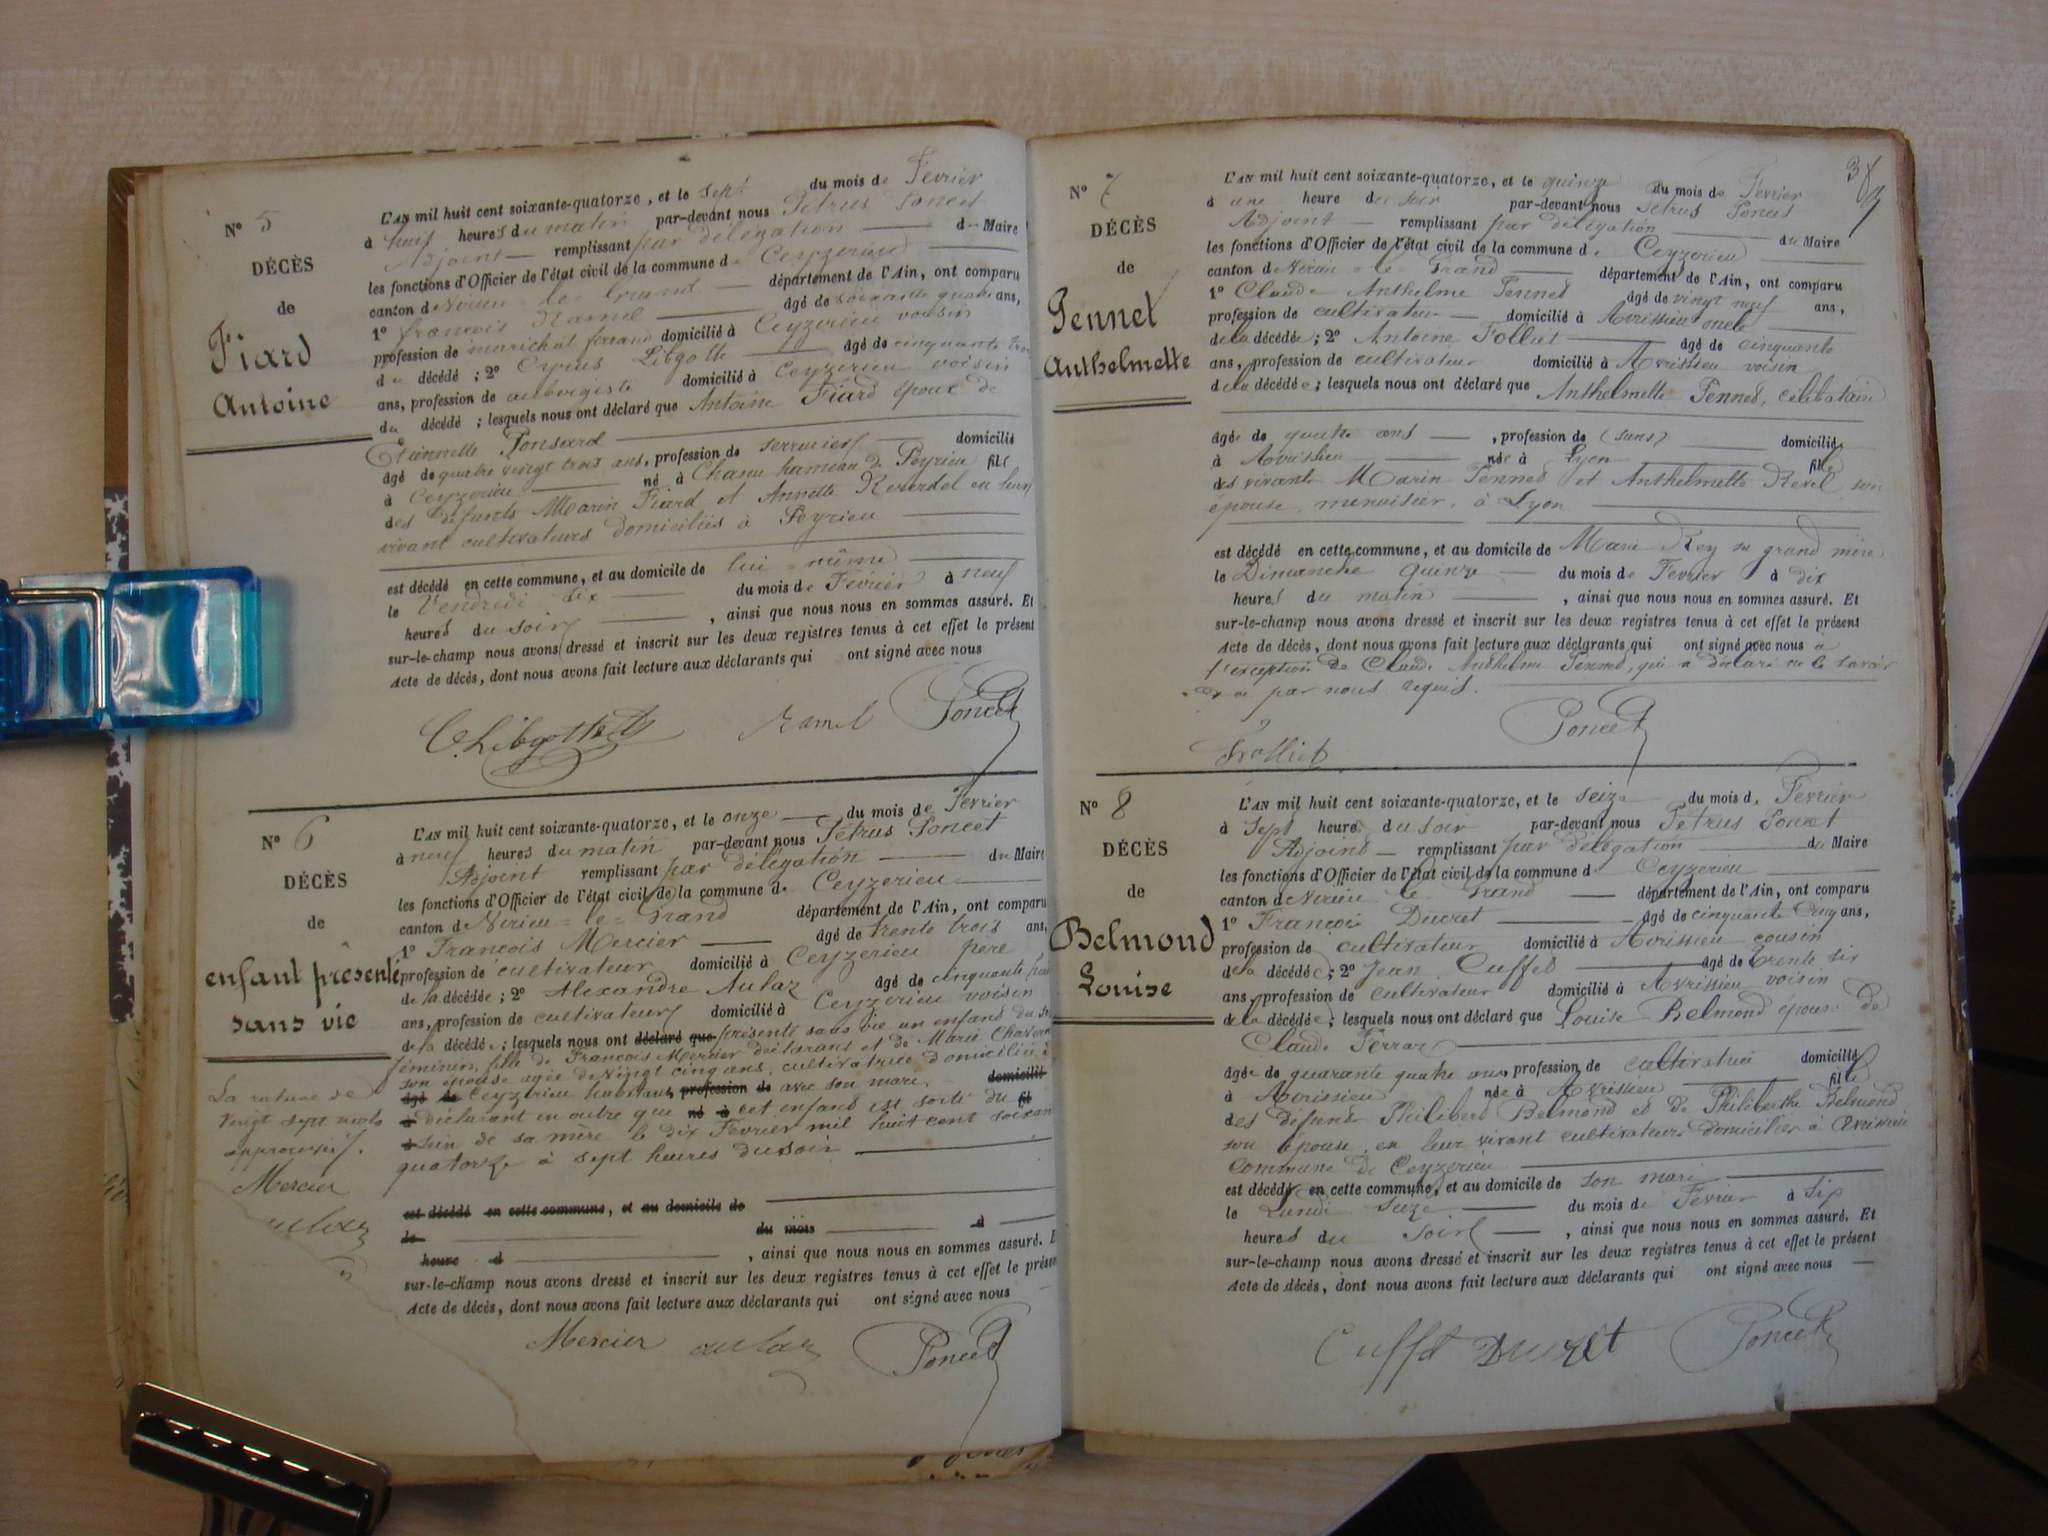 N° 5
DÉCÈS
de
Fiard
Antoine
L'AN mil huit cent soixante-quatorze, et le sept du mois de Fevrier
à huit heures du matin par-devant nous Petrus Poncet
Adjoint remplissant par délégation du Maire
les fonctions d'Officier de l'état civil de la commune de Ceyzerieu
canton de Virieu-le-Grand département de l'Ain, ont comparu
1° François Ramel âgé de soixante quatre ans,
profession de marichal ferrand domicilié à Ceyzerieu voisin
du décédé ; 2° Cyrus Libgotte âgé de cinquante
ans, profession de aubergiste domicilié à Ceyzerieu voisin
du décédé ; lesquels nous ont déclaré que Antoine Fiard époux de
Etiennette Ponsard
âgé de quatre vingt trois ans, profession de serrurier domicilié
à Ceyzerieu né à Chanu hameau de Peyrieu fils
des défunts Marin Fiard et Annette Reverdel en leur
vivant cultivateurs domiciliés à Peyrieu
est décédé en cette commune, et au domicile de lui-même
le Vendredi six du mois de Fevrier à neuf
heures du soir , ainsi que nous nous en sommes assuré. Et
sur-le-champ nous avons dressé et inscrit sur les deux registres tenus à cet effet le présent
Acte de décès, dont nous avons fait lecture aux déclarants qui ont signé avec nous
C. Libgotte Ramel Poncet
N° 6
DÉCÈS
de
enfant présenté
sans vie
La rature de
vingt sept mots
approuvée.
Mercier
L'AN mil huit cent soixante-quatorze, et le onze du mois de Fevrier
à neuf heures du matin par-devant nous Petrus Poncet
Adjoint remplissant par délégation du Maire
les fonctions d'Officier de l'état civil de la commune de Ceyzerieu
canton de Virieu-le-Grand département de l'Ain, ont comparu
1° François Mercier âgé de trente trois ans,
profession de cultivateur domicilié à Ceyzerieu père
de la décédée ; 2° Alexandre Aulaz âgé de cinquante
ans, profession de cultivateur domicilié à Ceyzerieu voisin
de la décédée ; lesquels nous ont déclaré que présenté sans vie un enfant du
féminin, fille de François Mercier déclarant et de Marie
son épouse agée de vingt cinq ans, cultivatrice domiciliée à
âgé de Ceyzerieu habitant profession de avec son mari. domicilié
à déclarant en outre que né à cet enfant est sorti du fil
d sein de sa mère le dix Fevrier mil huit cent soixan
quatorze à sept heures du soir
est décédé en cette commune, et au domicile de
le du mois à
heure d , ainsi que nous nous en sommes assuré. E
sur-le-champ nous avons dressé et inscrit sur les deux registres tenus à cet effet le présen
Acte de décès, dont nous avons fait lecture aux déclarants qui ont signé avec nous
Mercier aulaz Poncet
N° 7
DÉCÈS
de
Pennet
Anthelmette
L'AN mil huit cent soixante-quatorze, et le quinze du mois de Fevrier
à une heure du soir par-devant nous Petrus Poncet
Adjoint remplissant par délégation du Maire
les fonctions d'Officier de l'état civil de la commune de Ceyzerieu
canton de Virieu-le-Grand département de l'Ain, ont comparu
1° Claude Anthelme Pennet âgé de vingt neuf ans,
profession de cultivateur domicilié à Avrissieu oncle
de la décédée ; 2° Antoine Folliet âgé de cinquante
ans, profession de cultivateur domicilié à Avrissieu voisin
de la décédée ; lesquels nous ont déclaré que Anthelmette Pennet, célibataire
âgée de quatre ans , profession de (sans) domiciliée
à Avrissieu née à Lyon fille
des vivants Marin Pennet et Anthelmette Revel son
épouse, menuisier, à Lyon
est décédé en cette commune, et au domicile de Marie Rey sa grand mère
le Dimanche quinze du mois de Fevrier à dix
heures du matin , ainsi que nous nous en sommes assuré. Et
sur-le-champ nous avons dressé et inscrit sur les deux registres tenus à cet effet le présent
Acte de décès, dont nous avons fait lecture aux déclarants qui ont signé avec nous a
l'exception de Claude Anthelme Pennet, qui a déclaré ne le savoir
de ce par nous requis.
Poncet
Folliet
N° 8
DÉCÈS
de
Belmond
Louise
L'AN mil huit cent soixante-quatorze, et le seize du mois de Fevrier
à Sept heures du soir par-devant nous Petrus Poncet
Adjoint remplissant par délégation du Maire
les fonctions d'Officier de l'état civil de la commune de Ceyzerieu
canton de Virieu le Grand département de l'Ain, ont comparu
1° François Ducret âgé de cinquante cinq ans,
profession de cultivateur domicilié à Avrissieu cousin
de la décédée ; 2° Jean Cuffet âgé de trente six
ans, profession de cultivateur domicilié à Avrissieu voisin
de la décédée ; lesquels nous ont déclaré que Louise Belmond épouse de
Claude Ferraz
âgée de quarante quatre ans profession de cultivatrice domiciliée
à Avrissieu née à Avrissieu fille
des défunts Philibert Belmond et de Philiberthe Belmond
son épouse, en leur vivant cultivateurs domiciliés à Avrissieu
commune de Ceyzerieu
est décédé en cette commune, et au domicile de son mari
le Lundi seize du mois de Fevrier à Six
heures du Soir , ainsi que nous nous en sommes assuré. Et
sur-le-champ nous avons dressé et inscrit sur les deux registres tenus à cet effet le présent
Acte de décès, dont nous avons fait lecture aux déclarants qui ont signé avec nous
Cuffet Ducret Poncet